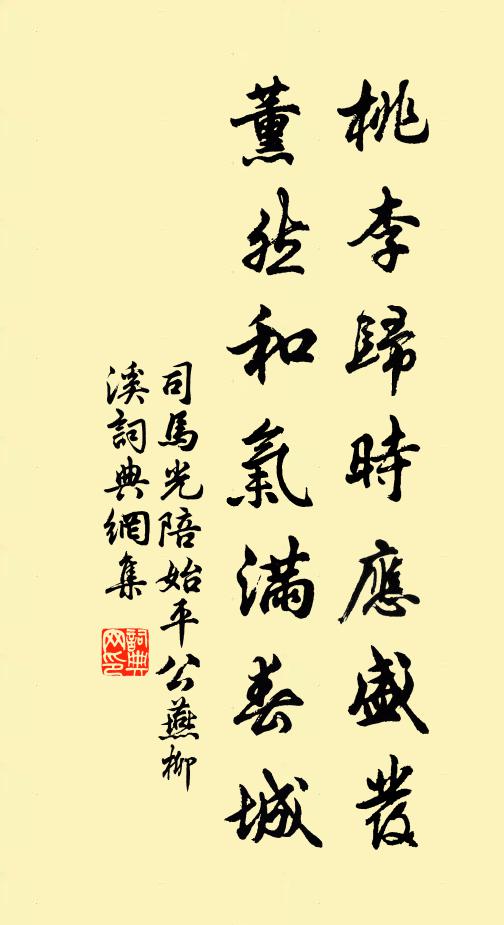 桃李歸時應盛發
薰然和氣滿春城
司馬光陪始平公燕柳
溪詞典網集
詞典網印